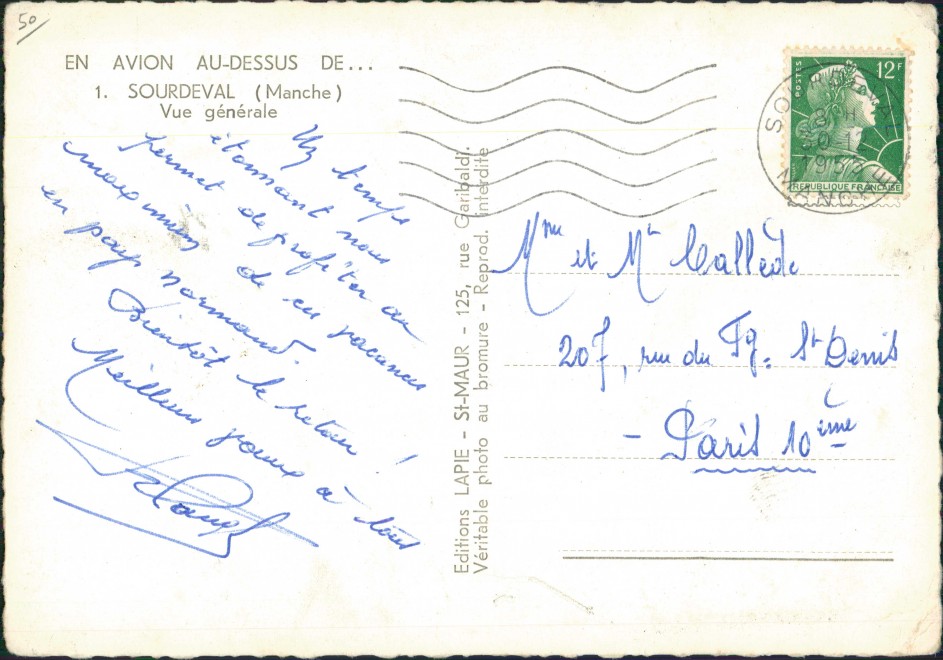 50
EN AVION AU-DESSUS DE...
1. SOURDEVAL (Manche)
Vue générale
Un temps
étonnant nous
permet de profiter au
maximum de ces vacances
en pays normand.
Bientôt le retour !
Meilleurs à tous
Editions LAPIE - St-MAUR - 125, rue Garibaldi.
Véritable photo au bromure - Reprod. interdite
POSTES
12F
REPUBLIQUE FRANÇAISE
MANCHE
Mme et Mr Callède
207, rue du Fg. St Denis
- Paris 10ème